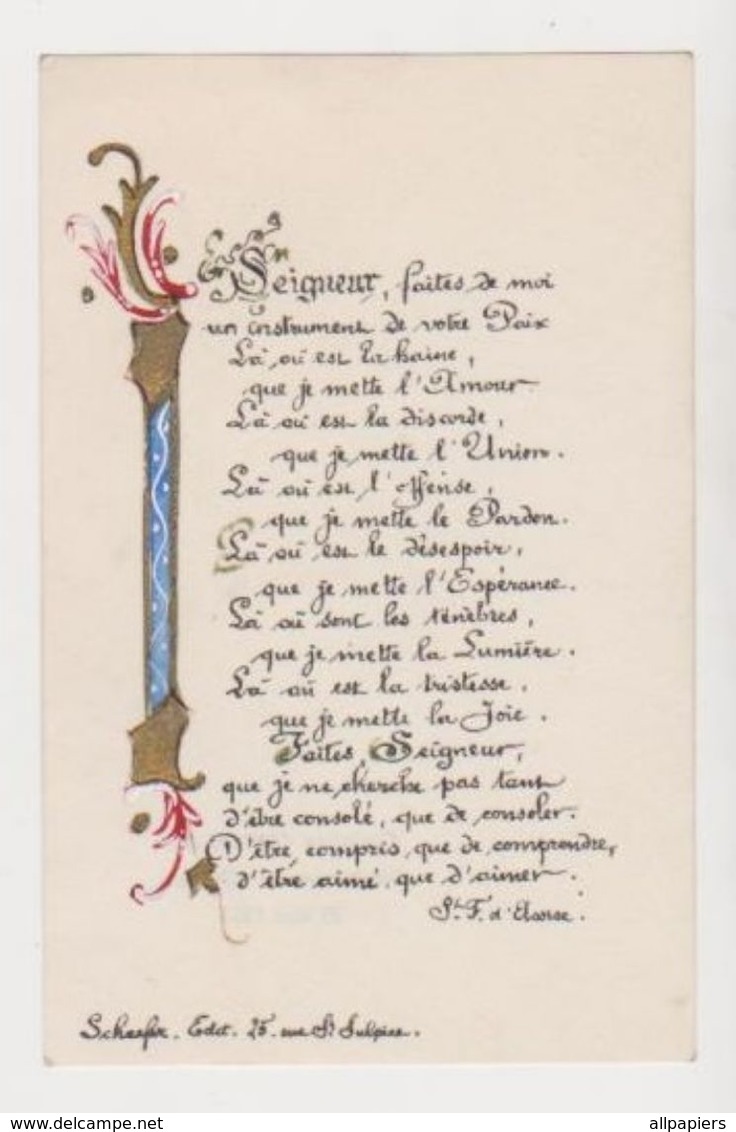 Seigneur, faites de moi
un instrument de votre Paix
Là où est la haine,
que je mette l'Amour.
Là où est la discorde,
que je mette l'Union.
Là où est l'offense,
que je mette le Pardon.
Là où est le désespoir,
que je mette l'Espérance.
Là où sont les ténèbres,
que je mette la Lumière.
Là où est la tristesse,
que je mette la Joie.
Faites, Seigneur,
que je ne cherche pas tant
d'être consolé, que de consoler.
D'être compris, que de comprendre,
d'être aimé, que d'aimer.
St. F. d'Assise.
Schaefer. Edit. 25. rue St Sulpice.
allpapiers